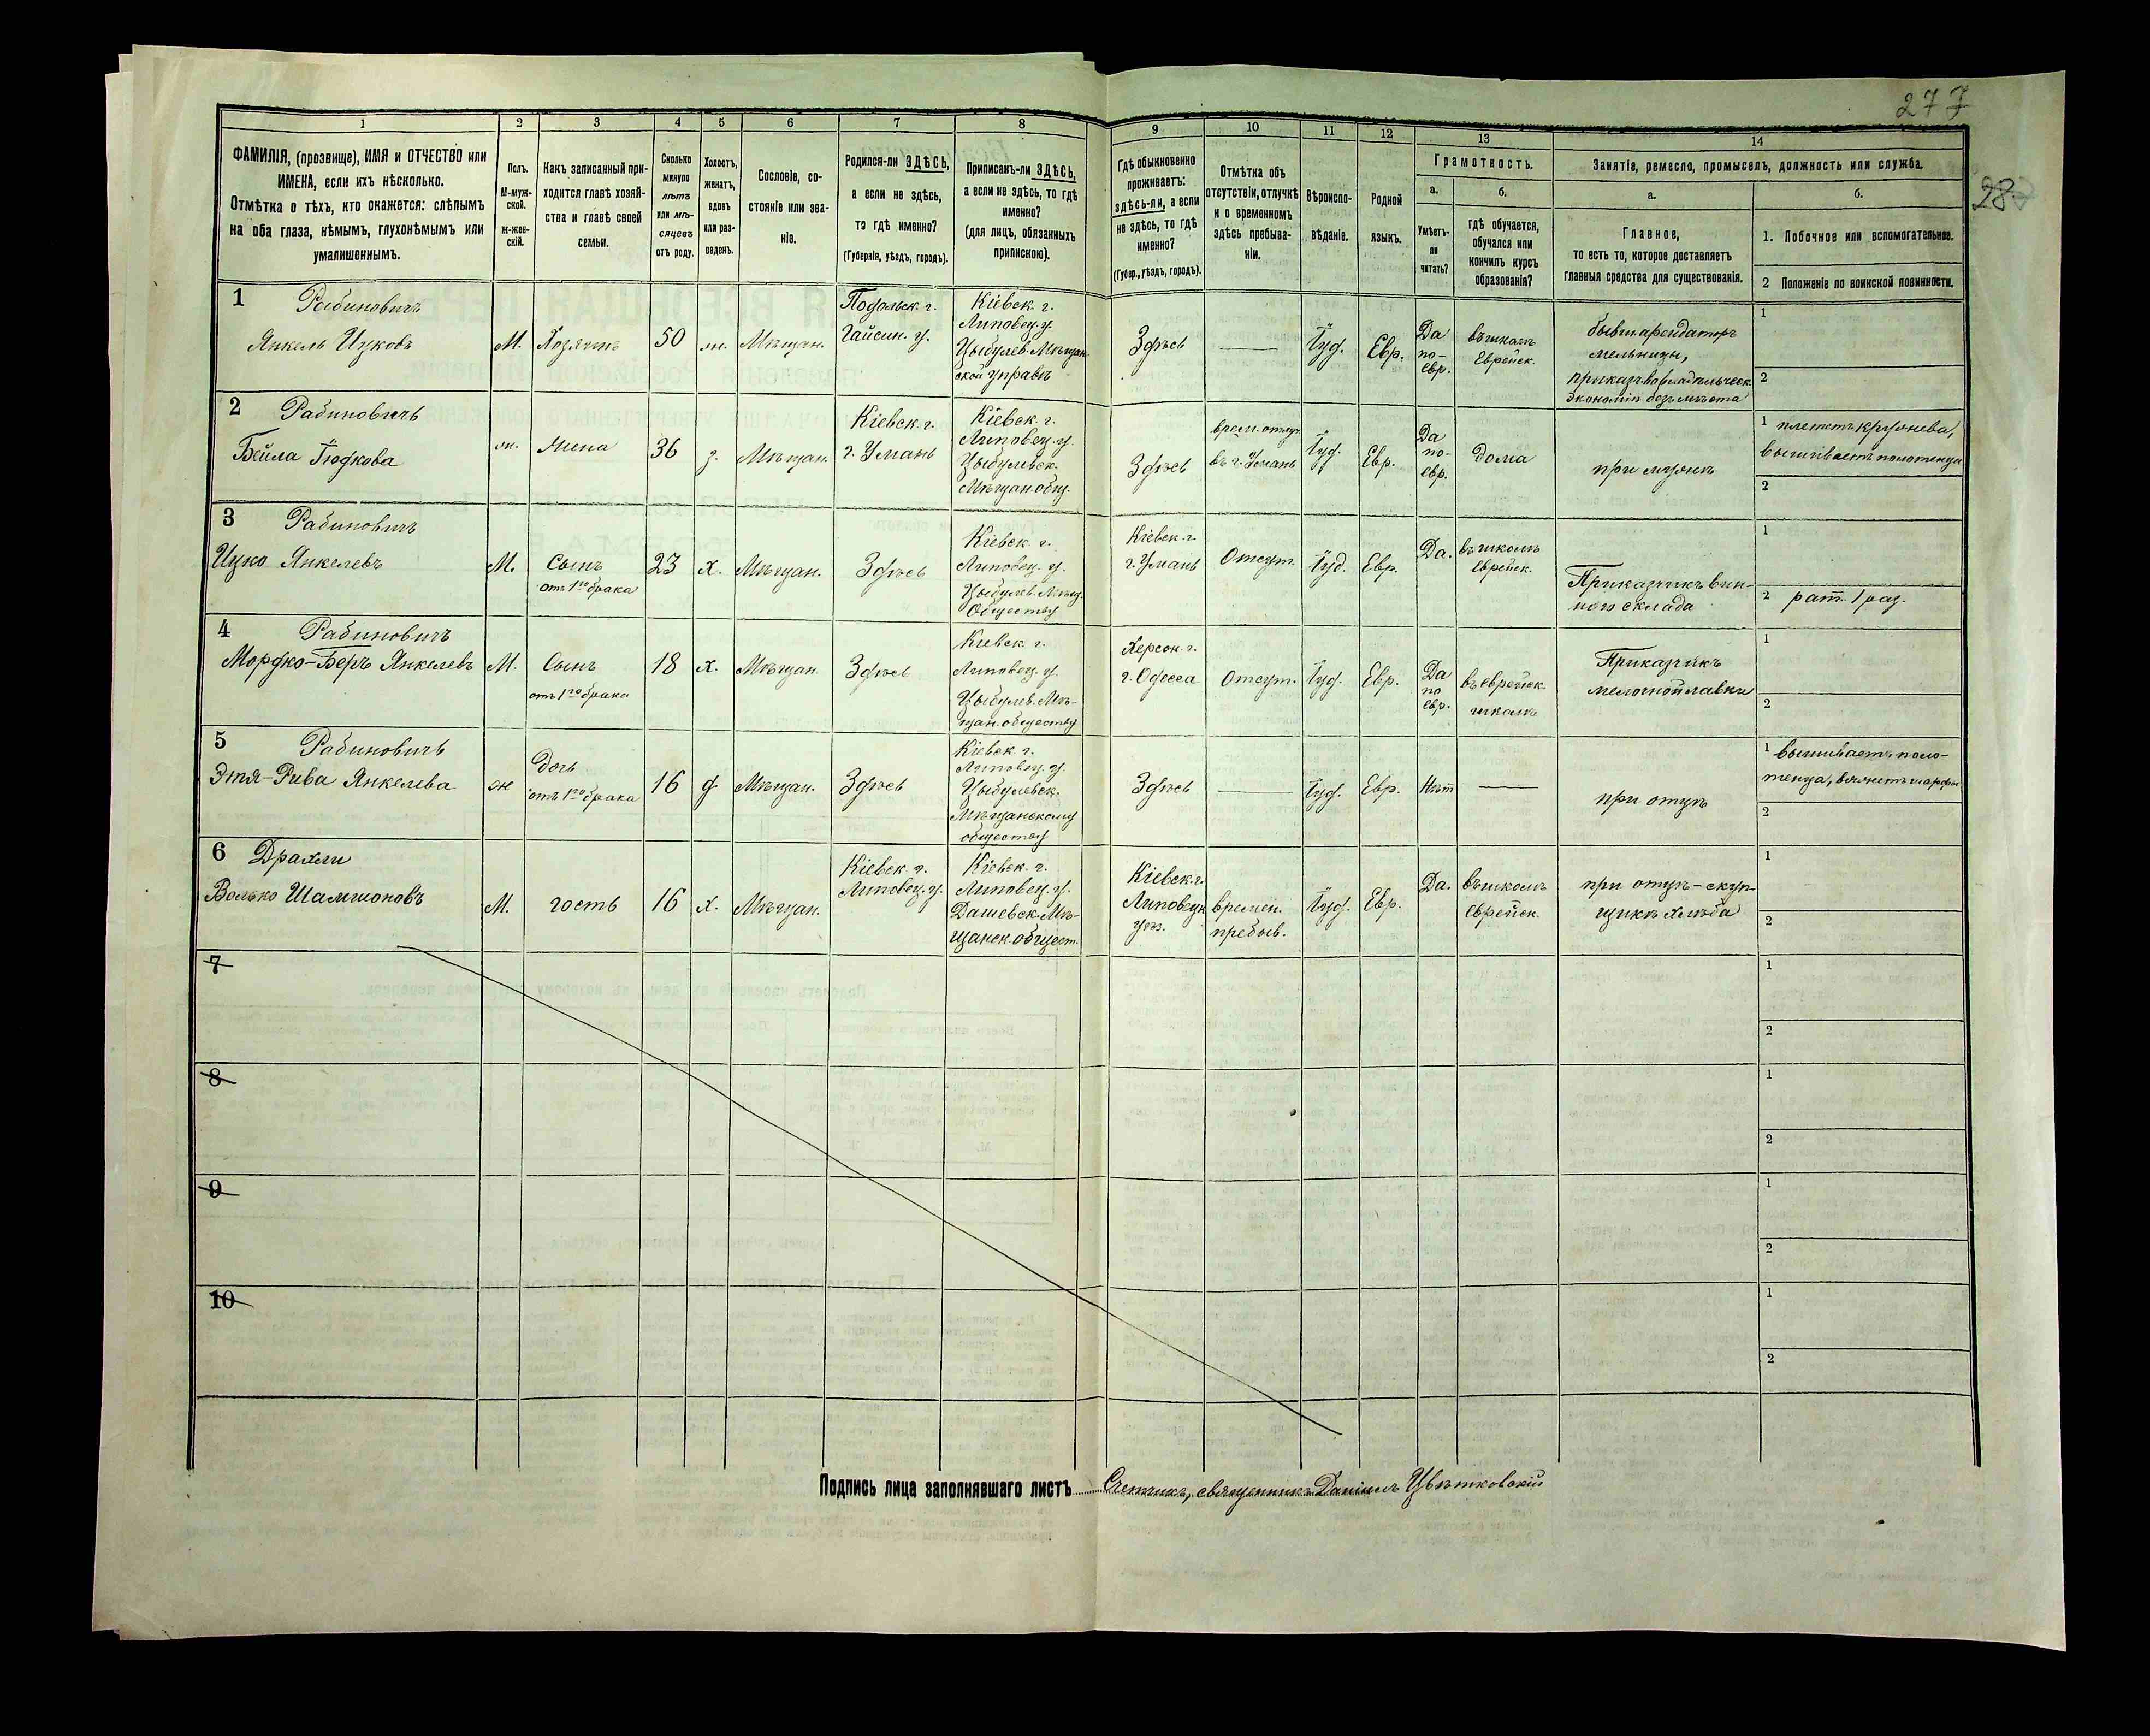 277
287
1
2
3
4
5
6
7
8
9
10
11
12
13
14
ФАМИЛІЯ, (прозвище), ИМЯ и ОТЧЕСТВО или
ИМЕНА, если ихъ нѣсколько.
Отмѣтка о тѣхъ, кто окажется: слѣпымъ
на оба глаза, нѣмымъ, глухонѣмымъ или
умалишеннымъ.
Полъ.
М-муж-
ской.
ж-жен-
скій.
Какъ записанный при-
ходится главѣ хозяй-
ства и главѣ своей
семьи.
Сколько
минуло
лѣтъ
или мѣ-
сяцевъ
отъ роду.
Холостъ,
женатъ,
вдовъ
или раз-
веденъ.
Сословіе, со-
стояніе или зва-
ніе.
Родился-ли ЗДѢСЬ,
а если не здѣсь,
то гдѣ именно?
(Губернія, уѣздъ, городъ).
Приписанъ-ли ЗДѢСЬ,
а если не здѣсь, то гдѣ
именно?
(для лицъ, обязанныхъ
припискою).
Гдѣ обыкновенно
проживаетъ:
здѣсь-ли, а если
не здѣсь, то гдѣ
именно?
(Губер., уѣздъ, городъ).
Отмѣтка объ
отсутствіи, отлучкѣ
и о временномъ
здѣсь пребыва-
ніи.
Вѣроиспо-
вѣданіе.
Родной
языкъ.
Грамотность.
а.
Умѣетъ-
ли
читать?
б.
Гдѣ обучается,
обучался или
кончилъ курсъ
образованія?
Занятіе, ремесло, промыселъ, должность или служба.
а.
Главное,
то есть то, которое доставляетъ
главныя средства для существованія.
б.
1. Побочное или вспомогательное.
2 Положеніе по воинской повинности.
1
Рабиновичъ
Янкель Ицковъ
М.
Хозяинъ
50
ж.
Мѣщан.
Подольск. г.
Гайсин. у.
Кіевск. г.
Липовец. у.
Цыбулев. Мѣщан-
ской управѣ
Здѣсь
Іуд.
Евр.
Да
по-
евр.
въ школѣ
Еврейск.
бывш. арендаторъ
мельницы,
экономіи безъ мѣста
1
2
2
Рабиновичъ
Бейла Іюдкова
ж.
жена
36
з.
Мѣщан.
Кіевск. г.
г. Умань
Кіевск. г.
Липовец. у.
Цыбулевск.
Мѣщан. общ.
Здѣсь
врем. отлуч.
въ г. Умань
Іуд.
Евр.
Да
по-
евр.
дома
при мужѣ
1 плететъ кружева,
вышиваетъ полотенца
2
3
Рабиновичъ
Ицко Янкелевъ
М.
Сынъ
отъ 1го брака
23
х.
Мѣщан.
Здѣсь
Кіевск. г.
Липовец. у.
Цыбулев. Мѣщ.
Обществу
Кіевск. г.
г. Умань
Отсут.
Іуд.
Евр.
Да.
въ школѣ
Еврейск.
Приказчикъ вин-
наго склада
1
2 рат. 1 раз.
4
Рабиновичъ
Мордко-Беръ Янкелевъ
М.
Сынъ
отъ 1го брака
18
х.
Мѣщан.
Здѣсь
Кіевск. г.
Липовец. у.
Цыбулев. Мѣ-
щан. обществу
Херсон. г.
г. Одесса
Отсут.
Іуд.
Евр.
Да
по
евр.
въ еврейск.
школѣ
Приказчикъ
мелочной лавки
1
2
5
Рабиновичъ
Этя-Рива Янкелева
ж
Дочь
отъ 1го брака
16
д
Мѣщан.
Здѣсь
Кіевск. г.
Липовец. у.
Цыбулевск.
Мѣщанскому
обществу
Здѣсь
Іуд.
Евр.
Нѣт
при отцѣ
1 вышиваетъ поло-
тенца, вяжетъ шарфы
2
6 Драхли
Волько Шамшоновъ
М.
гость
16
х.
Мѣщан.
Кіевск. г.
Липовец. у.
Кіевск. г.
Липовец. у.
Дашевск. Мѣ-
щанск. общест.
Кіевск. г.
Липовецк.
уѣз.
времен.
пребыв.
Іуд.
Евр.
Да.
въ школѣ
Еврейск.
при отцѣ - скуп-
щикѣ хлѣба
1
2
7
1
2
8
1
2
9
1
2
10
1
2
Подпись лица заполнявшаго листъ Счетчикъ, священникъ Даніилъ Цвѣтковскій